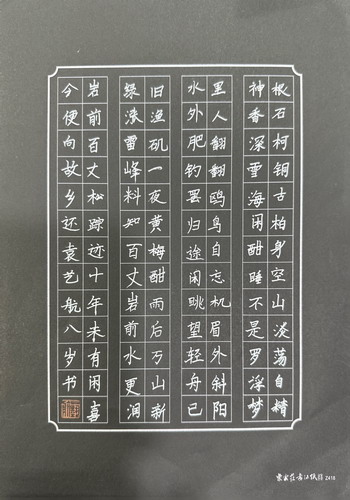 根石柯铜古柏身空山淡荡自精
神香深雪海闲酣睡不是罗浮梦
里人翻翻鸥鸟自忘机眉外斜阳
水外肥钓罢归途闲眺望轻舟已
旧渔矶一夜黄梅酣雨后万山新
绿涨雷峰料知百丈岩前水更润
岩前百丈松踪迹十年未有闲喜
今便向故乡还袁艺航八岁书
2418